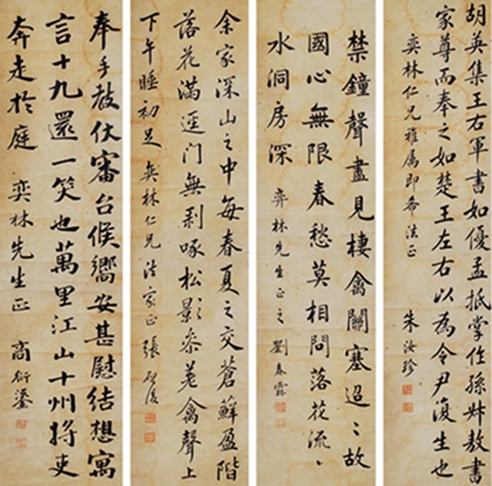 胡英集王右軍書如優孟抵掌作孫叔敖書
家尊而奉之如楚王左右以為令尹復生也
奕林仁兄雅屬即希法正 朱汝珍
禁鐘聲盡見棲禽關塞迢〻故
國心無限春愁莫相問落花流〻
水洞房深 奕林先生正之 劉春霖
余家深山之中每春夏之交蒼蘚盈階
落花滿逕門無剝啄松影參差禽聲上
下午睡初足 奕林仁兄法家正 張啟後
奉手教伏審台候嚮安甚慰結想寓
言十九還一笑也萬里江山十州將吏
奔走於庭 奕林先生正 商衍鎏